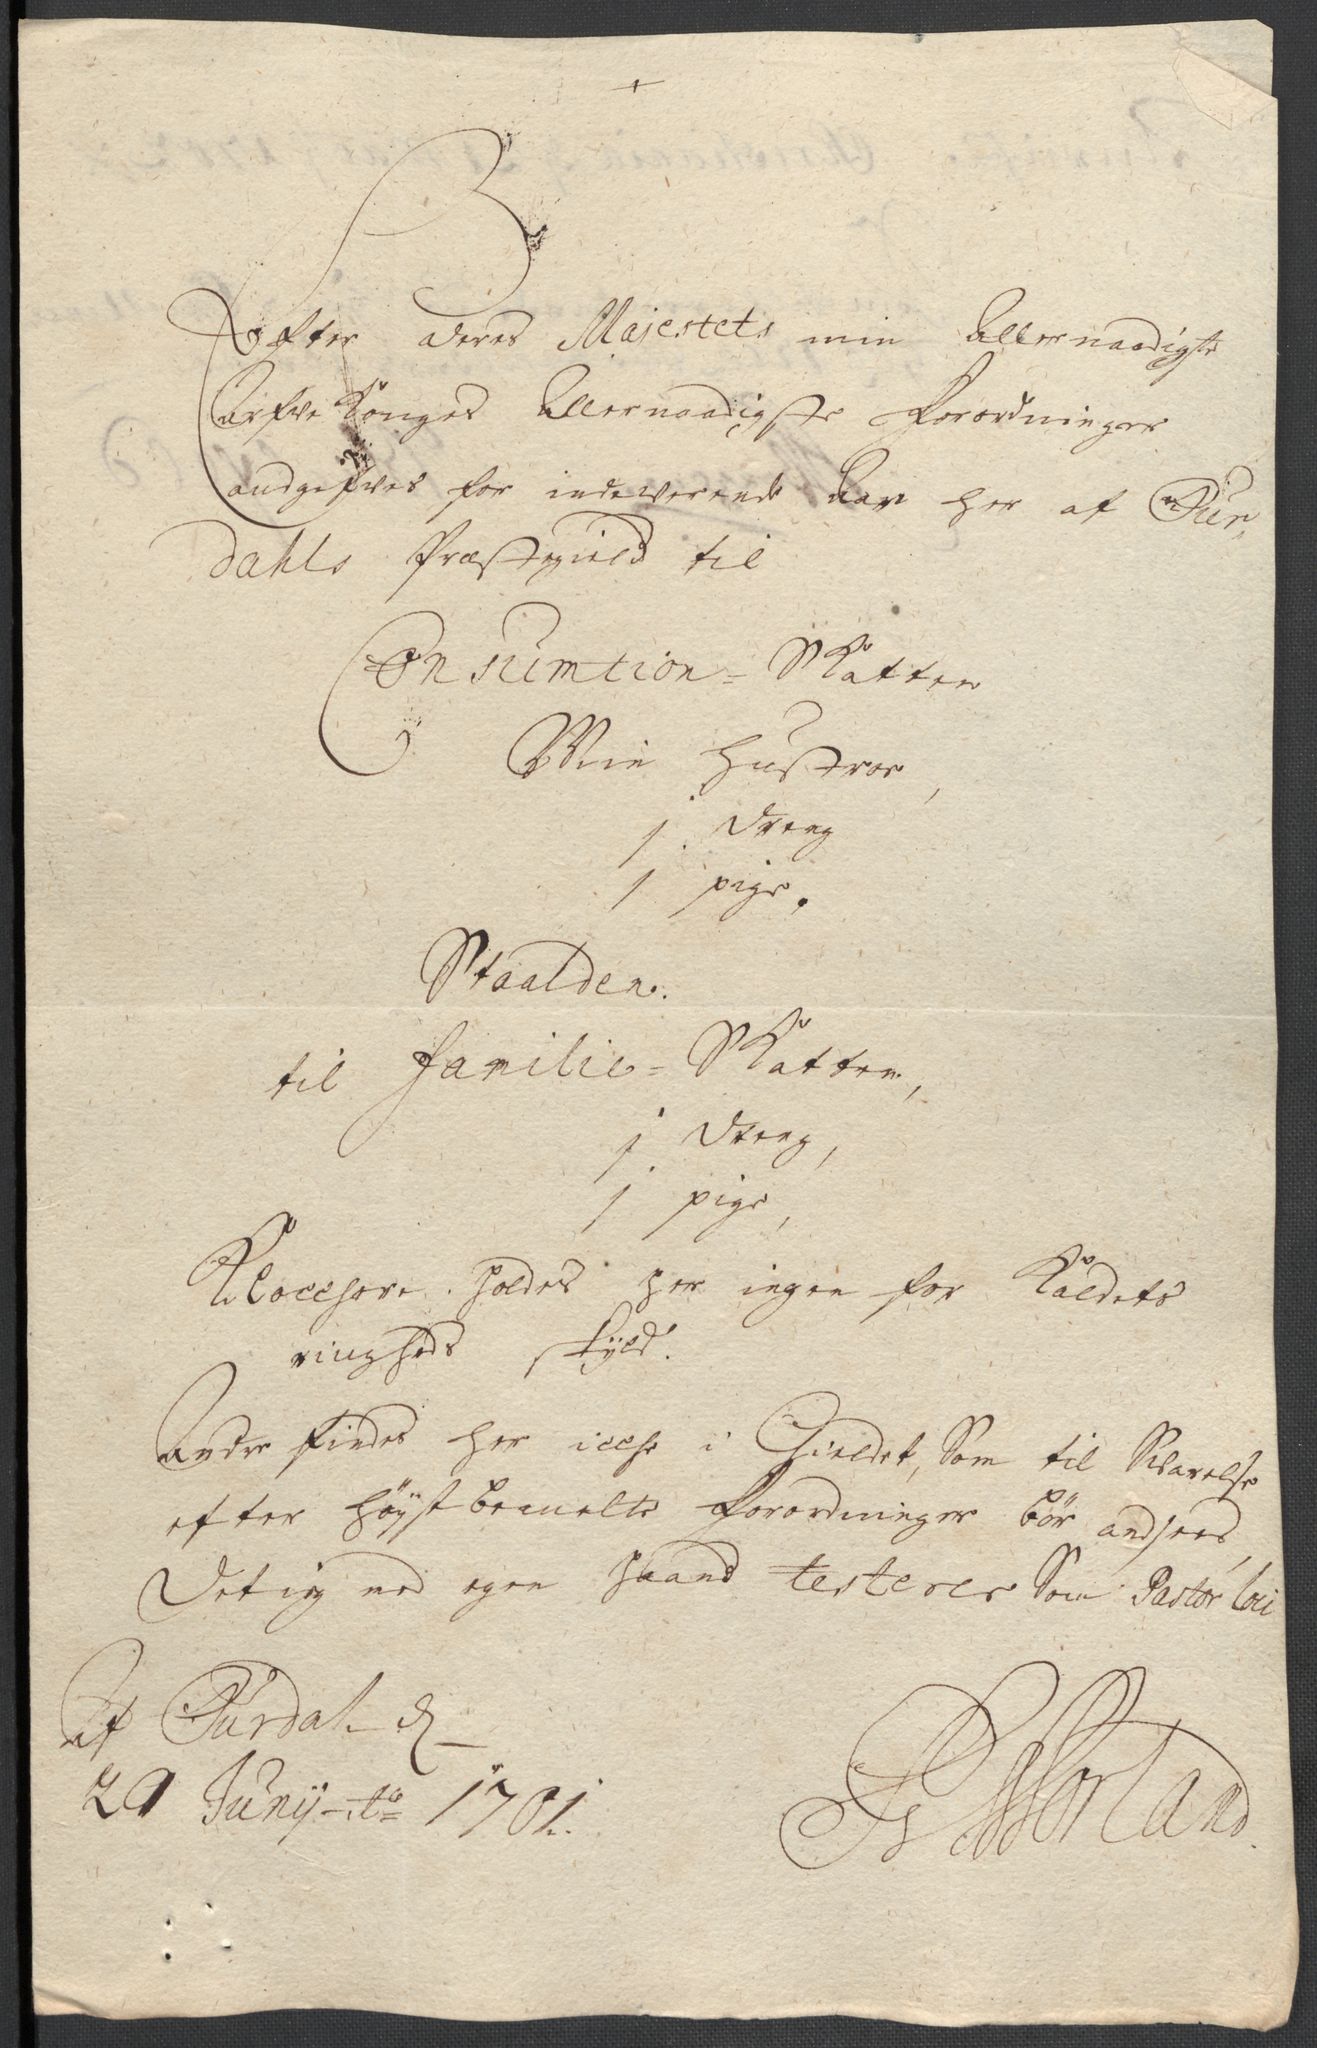 Efter deres Majestets min Allernaadigste
Arfve Konges Allernaadigste Forordninger
andgifves for indeverende Aar her af Sur,
dahls Præstegield til
Consumtion = Skatten
Min Hustroe,
1 dreng
1 pige.
Staalden.
til Familie = Skatten,
1 dreng,
1 pige,
Klocchere holdes her ingen for Kaldets
ringheds skyld.
Andre findes her icche i Gieldet, Som til Svarelse
efter høystbemelte Forordninger bør andsees,
Det ieg med egen Haand testerer Som Pastor loci
Af Surdal d
29 Junij Ao 1701.